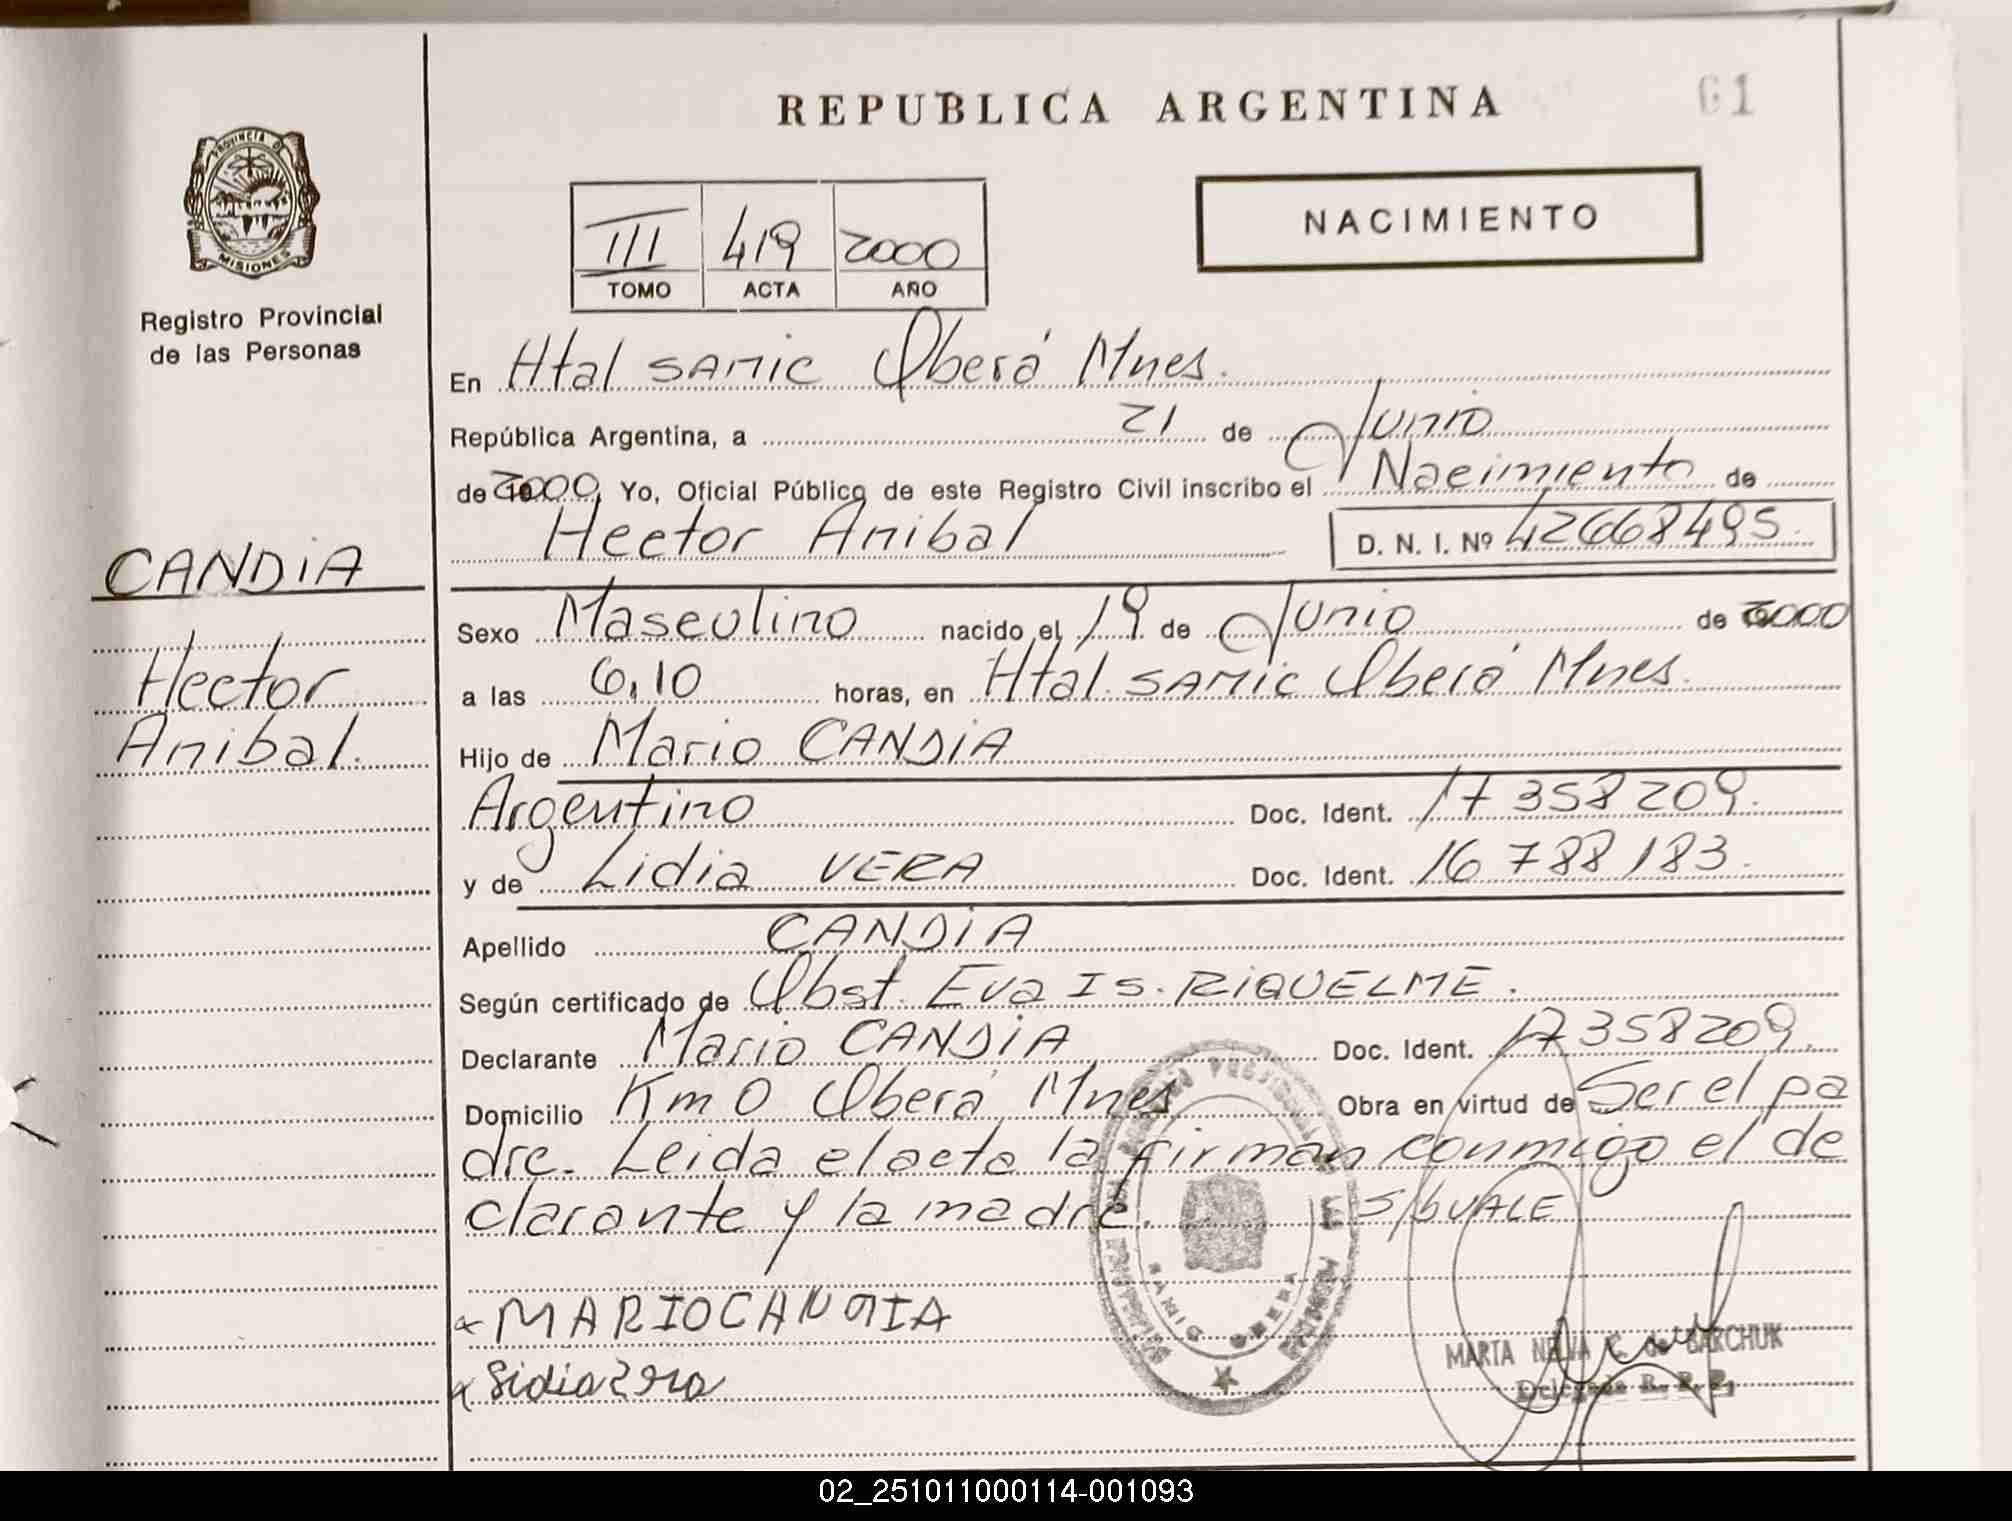 REPUBLICA ARGENTINA
61
PROVINCIA DE
MISIONES
Registro Provincial
de las Personas
III 419 2000
TOMO ACTA AÑO
NACIMIENTO
En Htal SAMIC Oberá Mnes.
República Argentina, a 21 de Junio
de 2000, Yo, Oficial Público de este Registro Civil inscribo el Nacimiento de
Hector Anibal D. N. I. Nº 42668495.
CANDIA
Hector
Anibal.
Sexo Masculino nacido el 19 de Junio de 2000
a las 6,10 horas, en Htal. SAMIC Oberá Mnes.
Hijo de Mario CANDIA
Argentino Doc. Ident. 17358209.
y de Lidia VERA Doc. Ident. 16788183.
Apellido CANDIA
Según certificado de Obst. Eva Is. RIQUELME.
Declarante Mario CANDIA Doc. Ident. 17358209.
Domicilio Km 0 Oberá Mnes Obra en virtud de Ser el pa
dre. Leida el acta la firman conmigo el de
clarante y la madre. S/b VALE
MARIO CANDIA
MARTA NELVA C. de BARCHUK
Delegada R. P. P.
02_251011000114-001093